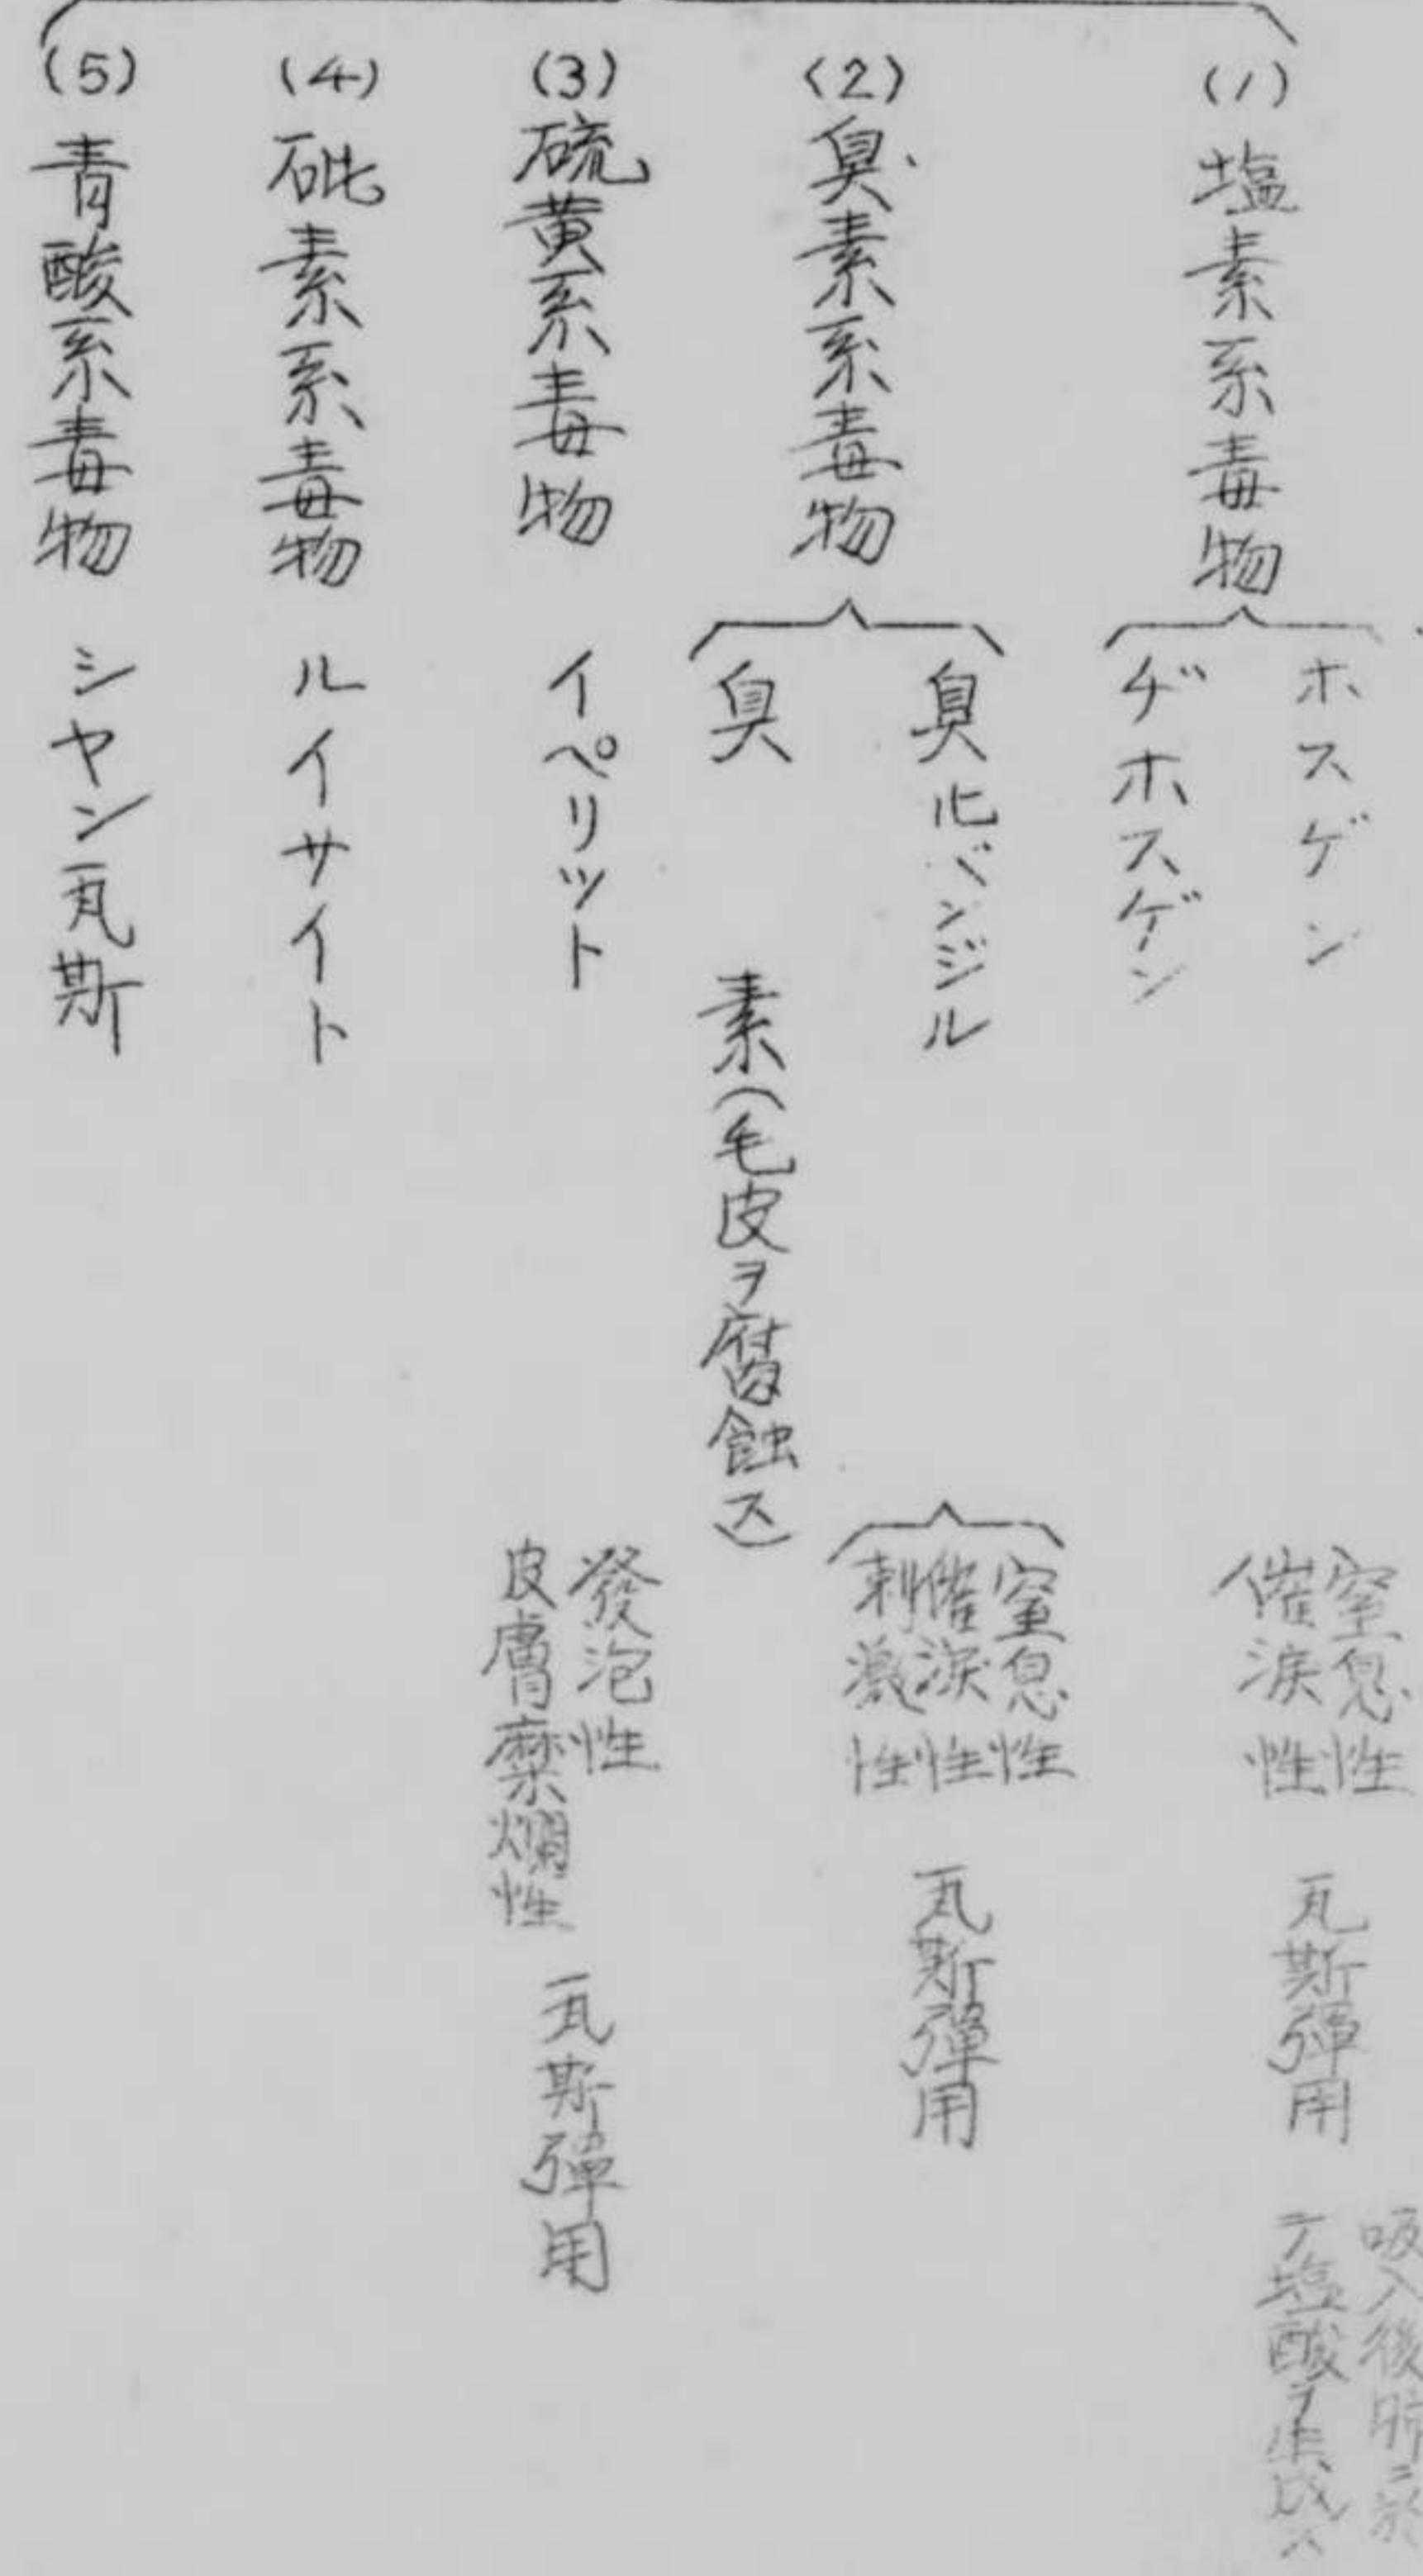 (1) 塩素系毒物
ホスゲン
ヂホスゲン
窒息性
催涙性
瓦斯彈用
吸入後肺ニ於
テ塩酸ヲ生成ス
(2) 臭素系毒物
臭化ベンジル
窒息性
催涙性
刺激性
瓦斯彈用
臭素(毛皮ヲ腐蝕ス)
(3) 硫黄系毒物 イペリット
發泡性
皮膚糜爛性
瓦斯彈用
(4) 砒素系毒物 ルイサイト
(5) 青酸系毒物 シヤン瓦斯